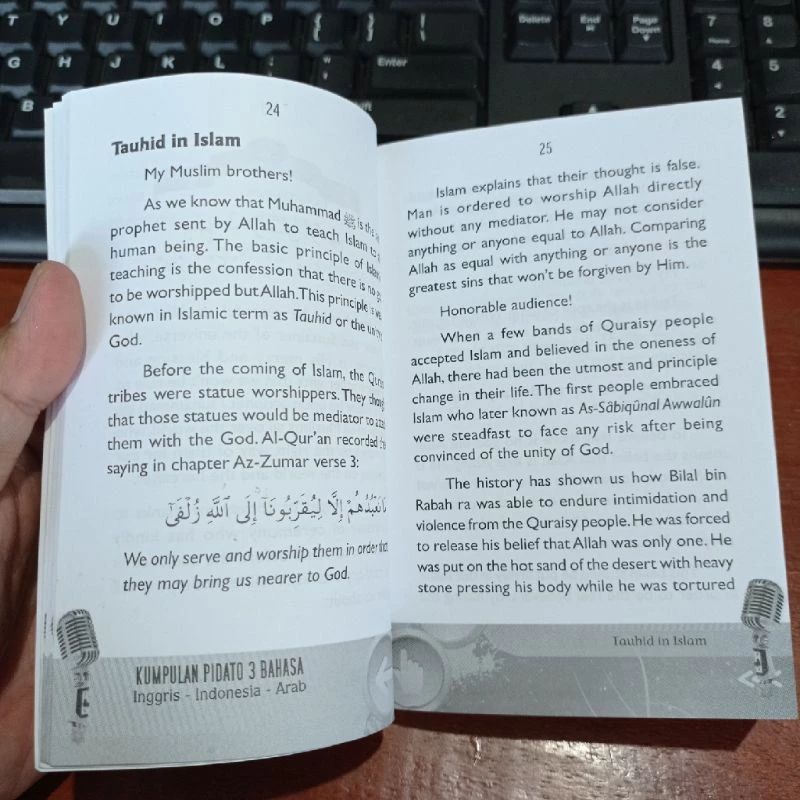 T Y U I O P { } |
[ ] \
Delete End Page Down
7 Home 8
G H J K L : ; " ' Enter 4 5
B 2
24
Tauhid in Islam
My Muslim brothers!
As we know that Muhammad ﷺ is the
prophet sent by Allah to teach Islam to
human being. The basic principle of
teaching is the confession that there is no
to be worshipped but Allah. This principle is
known in Islamic term as Tauhid or the
God.
Before the coming of Islam, the
tribes were statue worshippers. They
that those statues would be mediator to
them with the God. Al-Qur'an recorded
saying in chapter Az-Zumar verse 3:
مَا نَعْبُدُهُمْ إِلَّا لِيُقَرِّبُونَآ إِلَى ٱللَّهِ زُلْفَىٰٓ
We only serve and worship them in order that
they may bring us nearer to God.
KUMPULAN PIDATO 3 BAHASA
Inggris - Indonesia - Arab
25
Islam explains that their thought is false.
Man is ordered to worship Allah directly
without any mediator. He may not consider
anything or anyone equal to Allah. Comparing
Allah as equal with anything or anyone is the
greatest sins that won't be forgiven by Him.
Honorable audience!
When a few bands of Quraisy people
accepted Islam and believed in the oneness of
Allah, there had been the utmost and principle
change in their life. The first people embraced
Islam who later known as As-Sâbiqûnal Awwalûn
were steadfast to face any risk after being
convinced of the unity of God.
The history has shown us how Bilal bin
Rabah ra was able to endure intimidation and
violence from the Quraisy people. He was forced
to release his belief that Allah was only one. He
was put on the hot sand of the desert with heavy
stone pressing his body while he was tortured
Tauhid in Islam